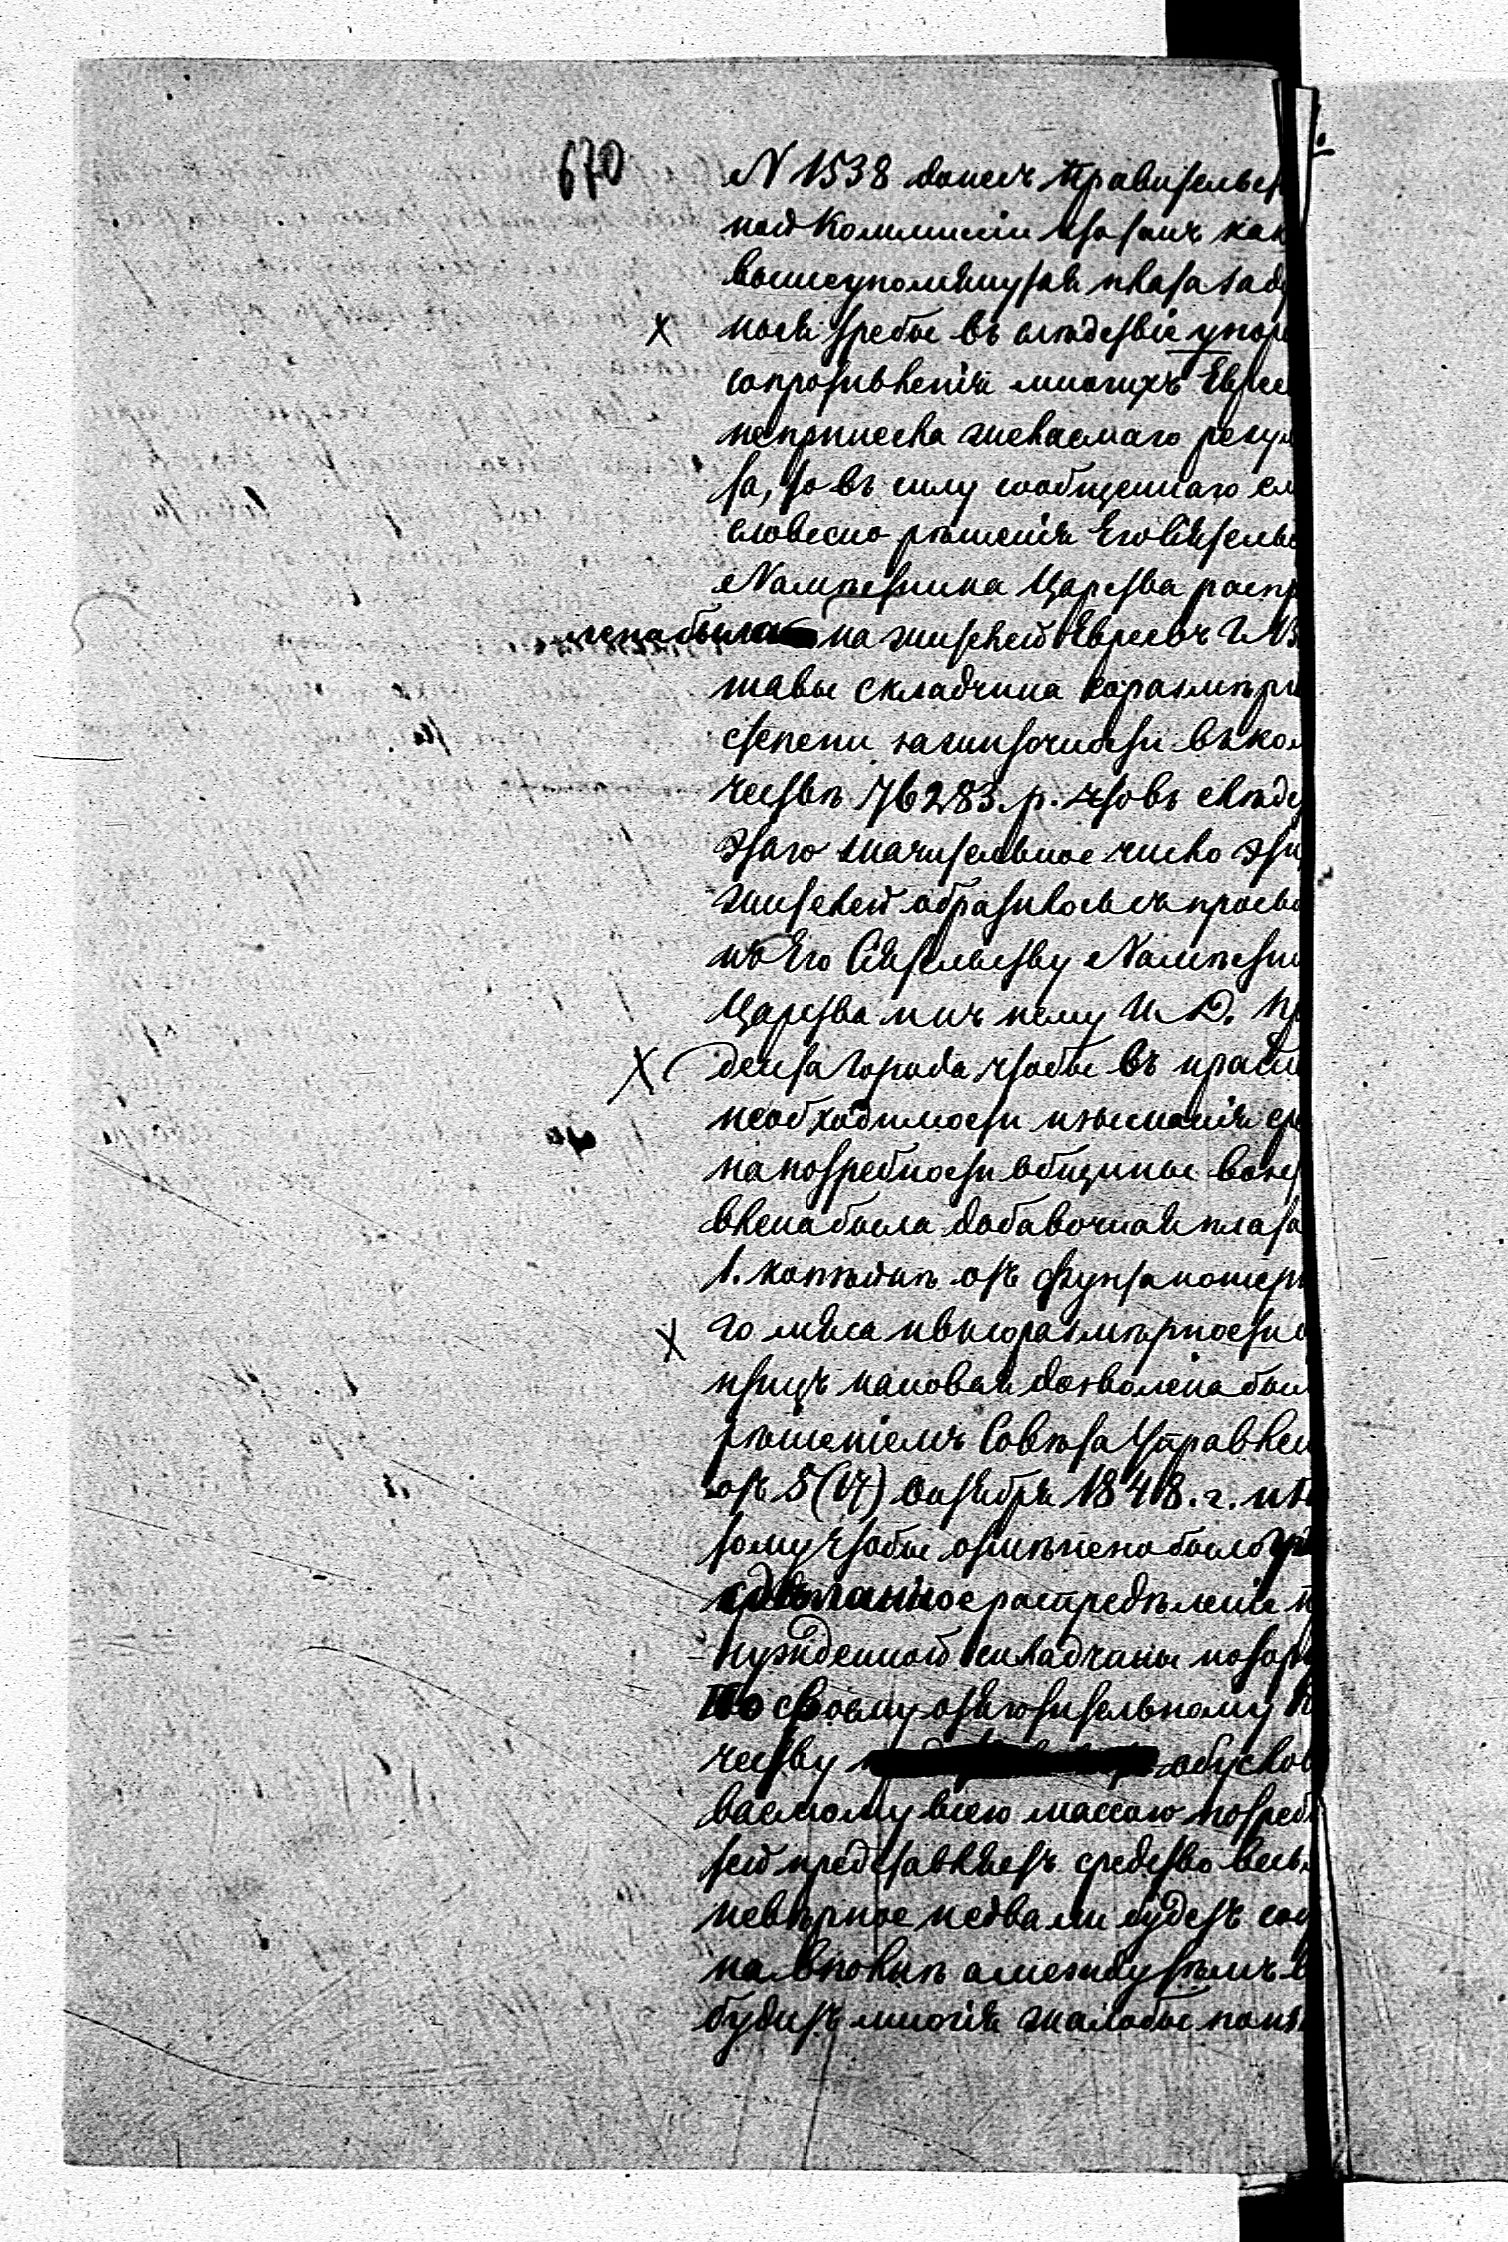 670
N 1538 донесъ Правительст
ной Коммиссіи что такъ как
вышеупомянутая плата
нося требы въ слѣдствіе упор
сопротивленія многихъ Евре
не принесла желаемаго резул
та, то въ силу сообщеннаго ем
словесно рѣшенія Его Сіятельс
Намѣстника Царства распр
лена была на жителей Евреевъ Г. В
шавы складчина соразмѣрн
степени зажиточности въ кол
чествѣ 76283 р. что въ слѣд
этаго значительное число эти
жителей обратилось съ прось
къ Его Сіятельству Намѣстни
Царства и къ нему И. Д. Пр
дента Города чтобы въ
необходимости изысканія ср
на потребности общины
влена была добавочная плата
1. копѣйкѣ отъ фунта кошерн
го мяса и въ соразмѣрности
птицъ каковая дозволена был
рѣшеніемъ Совѣта Управлен
отъ 5 (17) Октября 1848. г. и
тому чтобы отмѣнено было
сдѣланное распредѣленіе
нужденной складчины котор
По своему относительному к
честву обуслов
ваемому всею массою потреб
тей представляетъ средство весь
невѣрное и едва ли будетъ
на вполнѣ а между тѣмъ в
будитъ многія жалобы